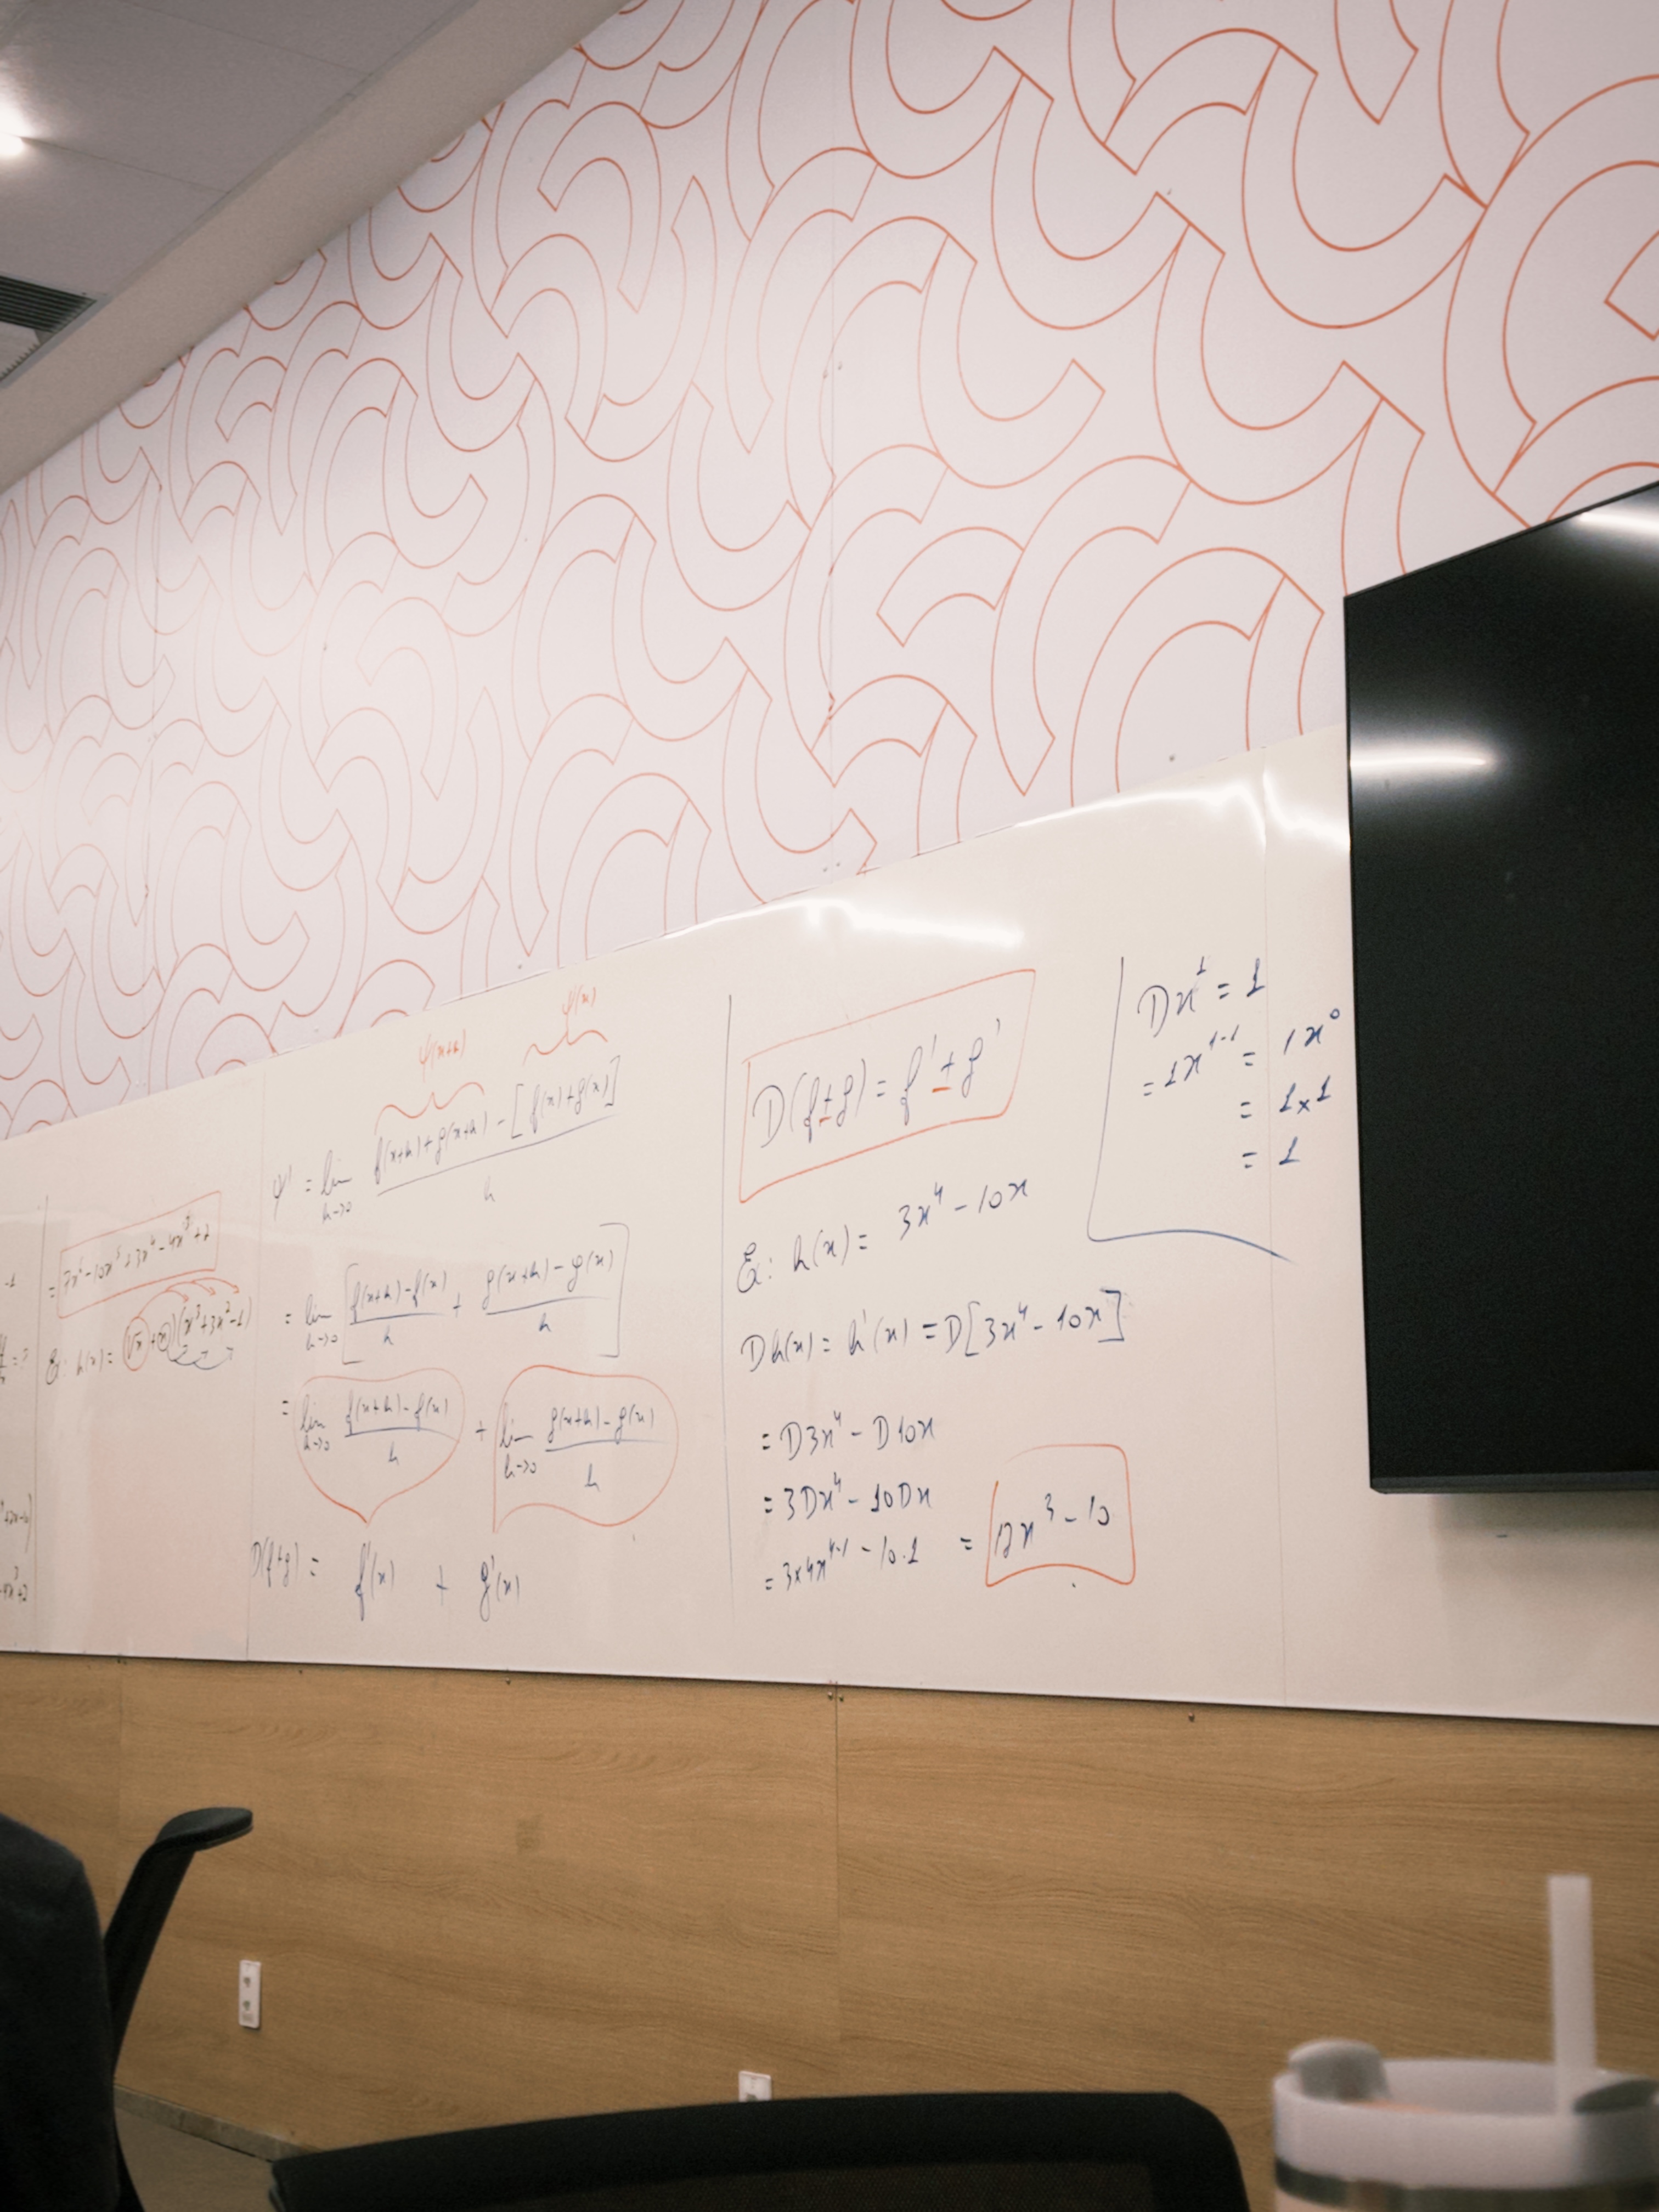 ψ(x+h) ψ(x)
ψ' = lim h→0 f(x+h)+g(x+h) - [f(x)+g(x)] / h
= lim h→0 [ f(x+h)-f(x) / h + g(x+h)-g(x) / h ]
= lim h→0 f(x+h)-f(x) / h + lim h→0 g(x+h)-g(x) / h
D(f+g) = f'(x) + g'(x)
D(f±g) = f' ± g'
Ex: h(x) = 3x⁴ - 10x
Dh(x) = h'(x) = D[3x⁴ - 10x]
= D3x⁴ - D10x
= 3Dx⁴ - 10Dx
= 3×4x⁴⁻¹ - 10.1 = 12x³ - 10
Dx¹ = 1
= 1x¹⁻¹ = 1x⁰
= 1×1
= 1